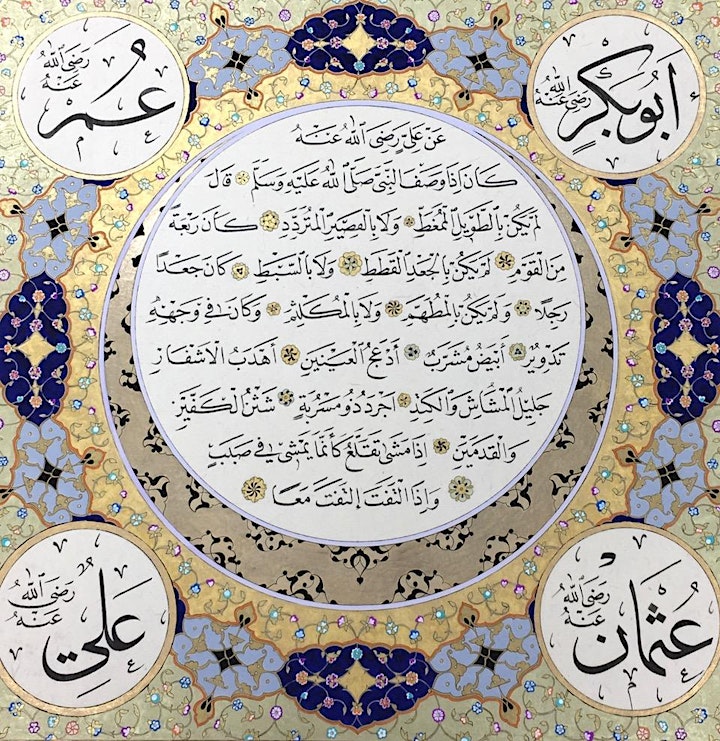 أَبُو بَكْرٍ
رَضِيَ اللهُ عَنْهُ
عُمَرْ
رَضِيَ اللهُ عَنْهُ
عَنْ عَلِيٍّ رَضِيَ اللهُ عَنْهُ
كَانَ إِذَا وَصَفَ النَّبِيَّ صَلَّى اللهُ عَلَيْهِ وَسَلَّمَ قَالَ
لَمْ يَكُنْ بِالطَّوِيلِ الْمُمَغَّطِ وَلَا بِالْقَصِيرِ الْمُتَرَدِّدِ كَانَ رَبْعَةً
مِنَ الْقَوْمِ لَمْ يَكُنْ بِالْجَعْدِ الْقَطَطِ وَلَا بِالسَّبْطِ كَانَ جَعْدًا
رَجِلًا وَلَمْ يَكُنْ بِالْمُطَهَّمِ وَلَا بِالْمُكَلْثَمِ وَكَانَ فِي وَجْهِهِ
تَدْوِيرٌ أَبْيَضُ مُشَرَّبٌ أَدْعَجُ الْعَيْنَيْنِ أَهْدَبُ الْأَشْفَارِ
جَلِيلُ الْمُشَاشِ وَالْكَتِدِ أَجْرَدُ ذُو مَسْرُبَةٍ شَثْنُ الْكَفَّيْنِ
وَالْقَدَمَيْنِ إِذَا مَشَى يَتَقَلَّعُ كَأَنَّمَا يَمْشِي فِي صَبَبٍ
وَإِذَا الْتَفَتَ إِلْتَفَتَ مَعًا
عُثْمَانْ
رَضِيَ اللهُ عَنْهُ
عَلِيّ
رَضِيَ اللهُ عَنْهُ